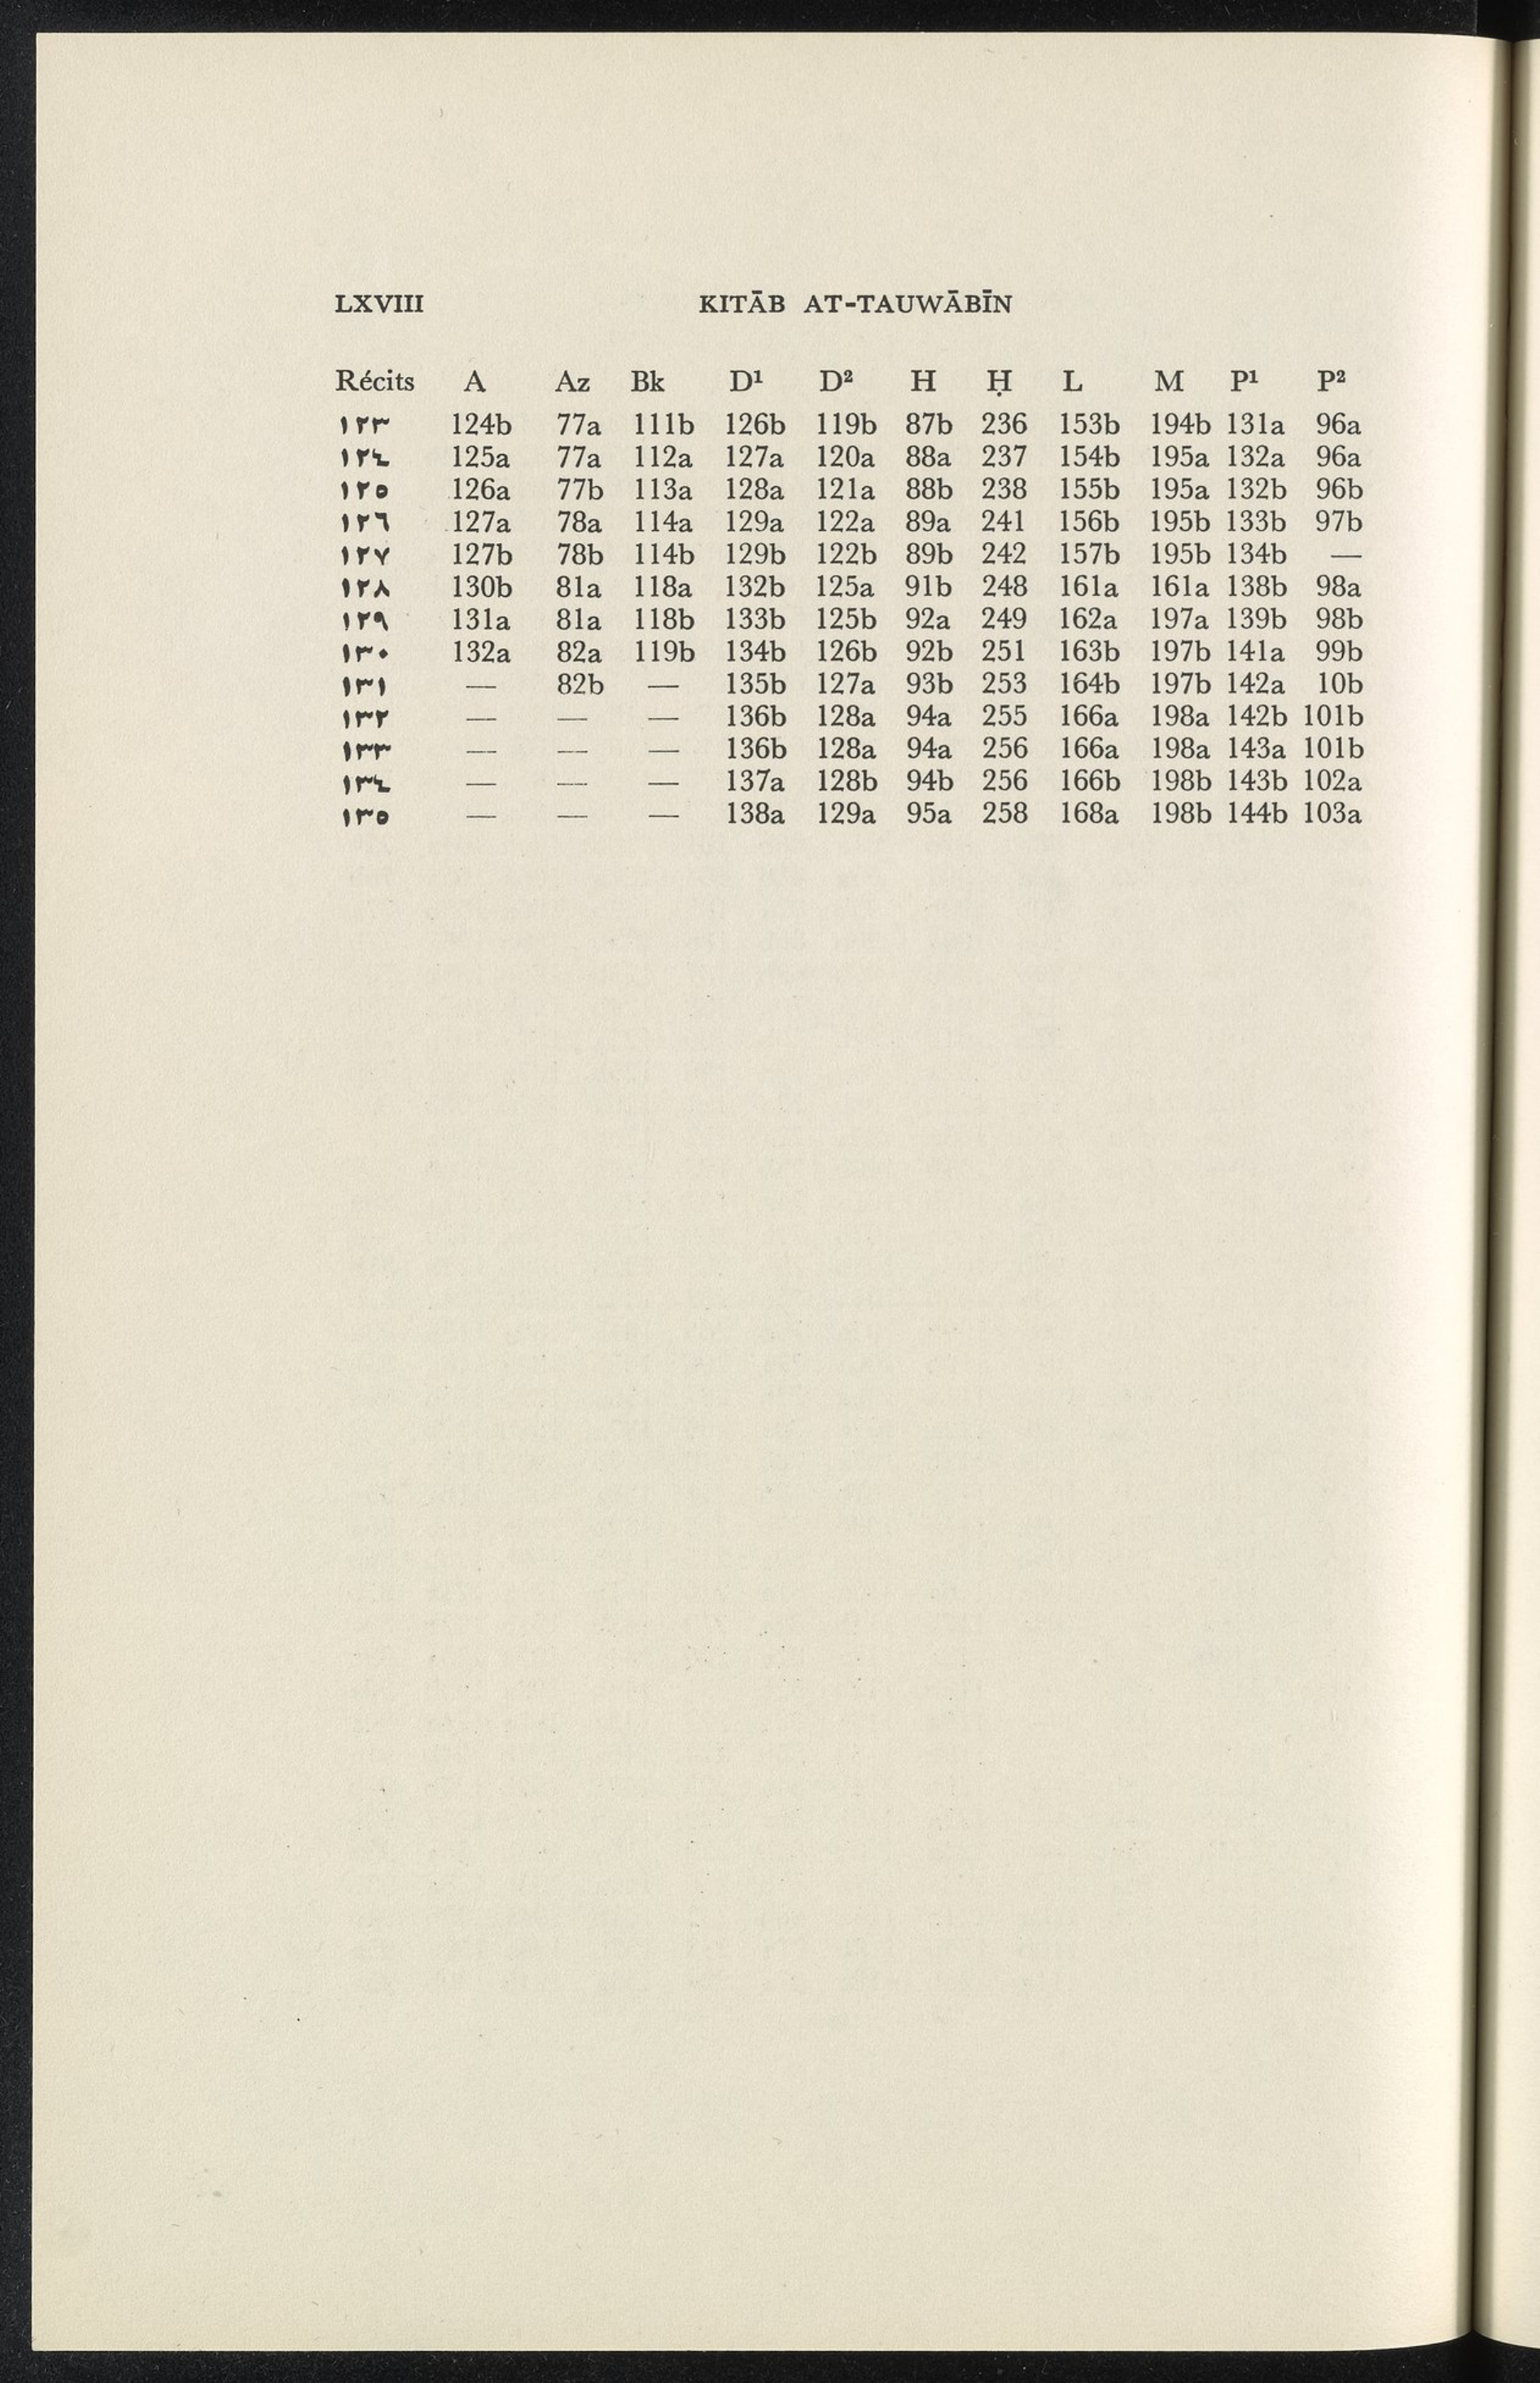 LXVIII KITĀB AT-TAUWĀBĪN
Récits A Az Bk D¹ D² H Ḥ L M P¹ P²
١٢٣ 124b 77a 111b 126b 119b 87b 236 153b 194b 131a 96a
١٢٤ 125a 77a 112a 127a 120a 88a 237 154b 195a 132a 96a
١٢٥ 126a 77b 113a 128a 121a 88b 238 155b 195a 132b 96b
١٢٦ 127a 78a 114a 129a 122a 89a 241 156b 195b 133b 97b
١٢٧ 127b 78b 114b 129b 122b 89b 242 157b 195b 134b —
١٢٨ 130b 81a 118a 132b 125a 91b 248 161a 161a 138b 98a
١٢٩ 131a 81a 118b 133b 125b 92a 249 162a 197a 139b 98b
١٣٠ 132a 82a 119b 134b 126b 92b 251 163b 197b 141a 99b
١٣١ — 82b — 135b 127a 93b 253 164b 197b 142a 10b
١٣٢ — — — 136b 128a 94a 255 166a 198a 142b 101b
١٣٣ — — — 136b 128a 94a 256 166a 198a 143a 101b
١٣٤ — — — 137a 128b 94b 256 166b 198b 143b 102a
١٣٥ — — — 138a 129a 95a 258 168a 198b 144b 103a